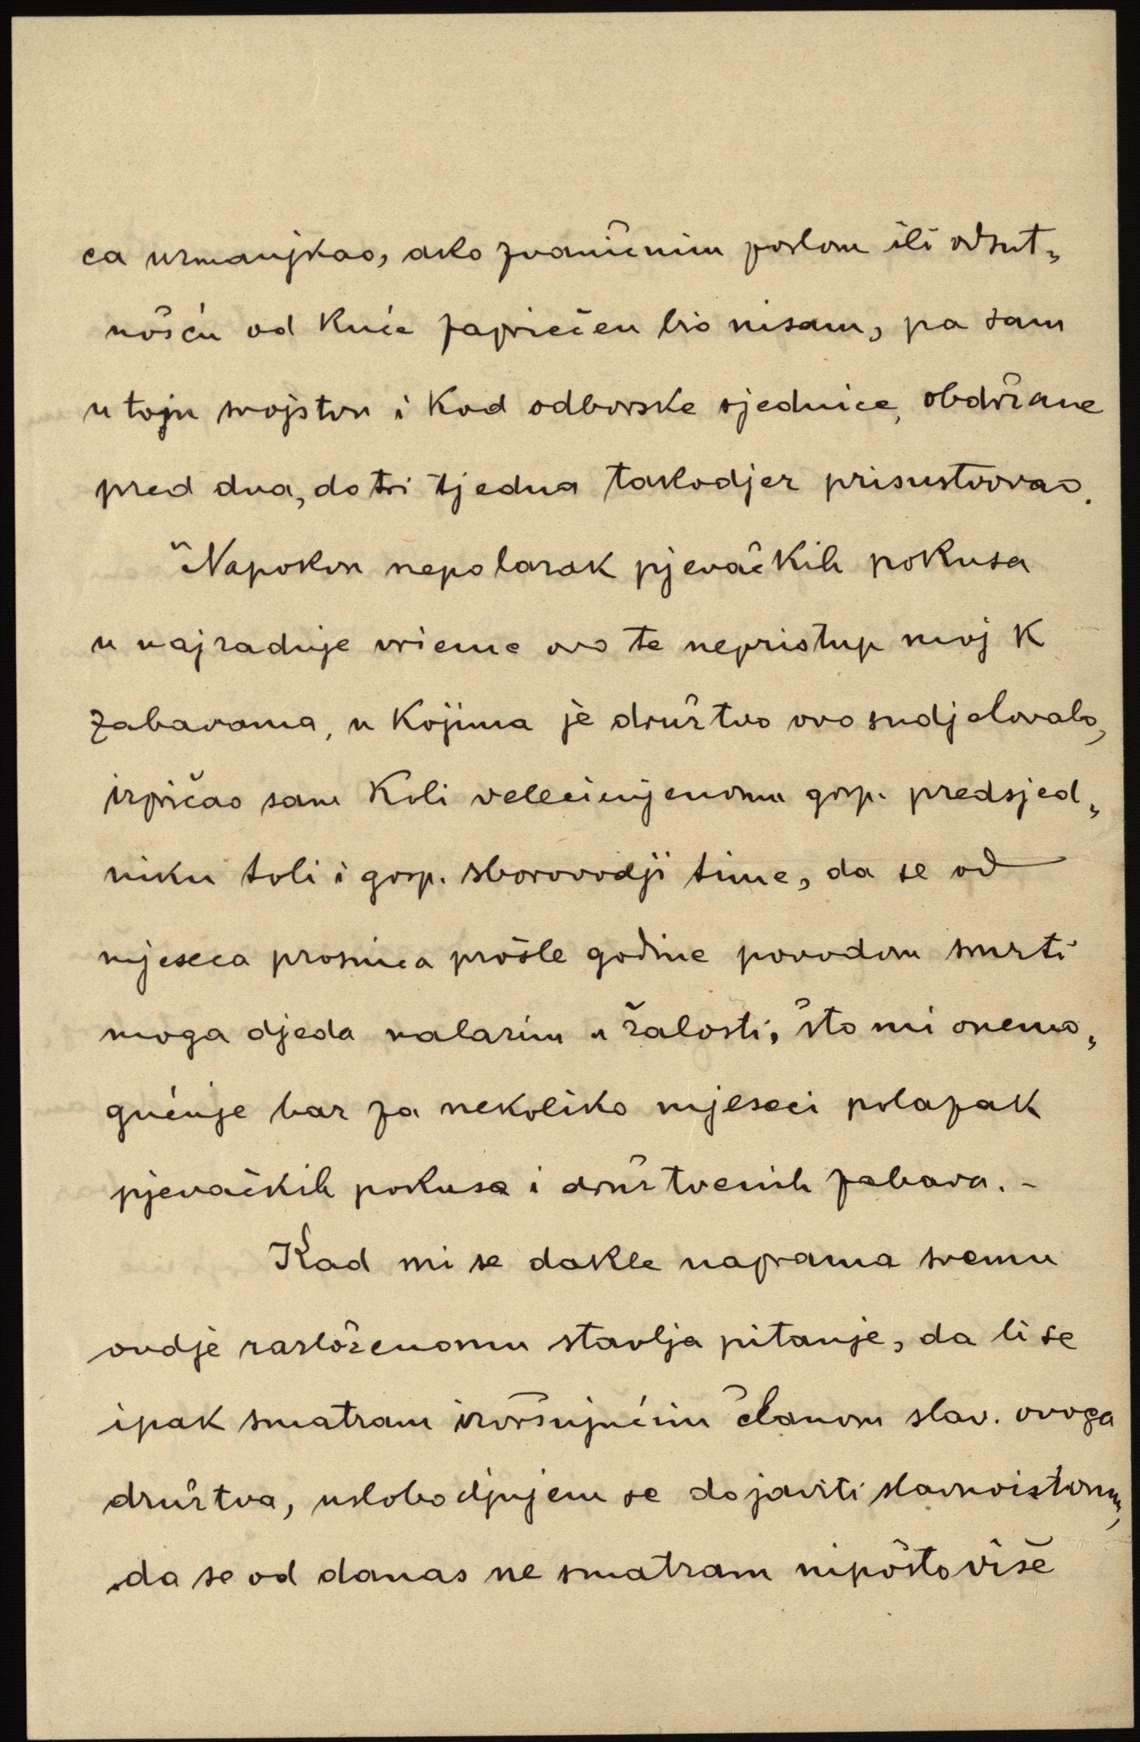 ca uzmanjkao, ako zvaničnim poslom ili odsut„
nošću od kuće zapriečen bio nisam, pa sam
u toju svojstvu i kod odborske sjednice, obdržane
pred dva, do tri tjedna takodjer prisustvovao.
Napokon nepolazak pjevačkih pokusa
u najzadnje vrieme ovo te nepristup moj k
zabavama, u kojima je društvo ovo sudjelovalo,
izpričao sam koli velecienjenomu gosp. predsjed„
niku toli i gosp. sborovodji time, da se od
mjeseca prosinca prošle godine povodom smrti
moga djeda nalazim u žalosti, što mi onemo„
gućuje bar za nekoliko mjeseci polazak
pjevačkih pokusa i družtvenih zabava. -
Kad mi se dakle naprama svemu
ovdje razloženomu stavlja pitanje, da li se
ipak smatram izvršujućim članom slav. ovoga
družtva, uslobodjujem se dojaviti slavnoistomu,
da se od danas ne smatram nipošto više